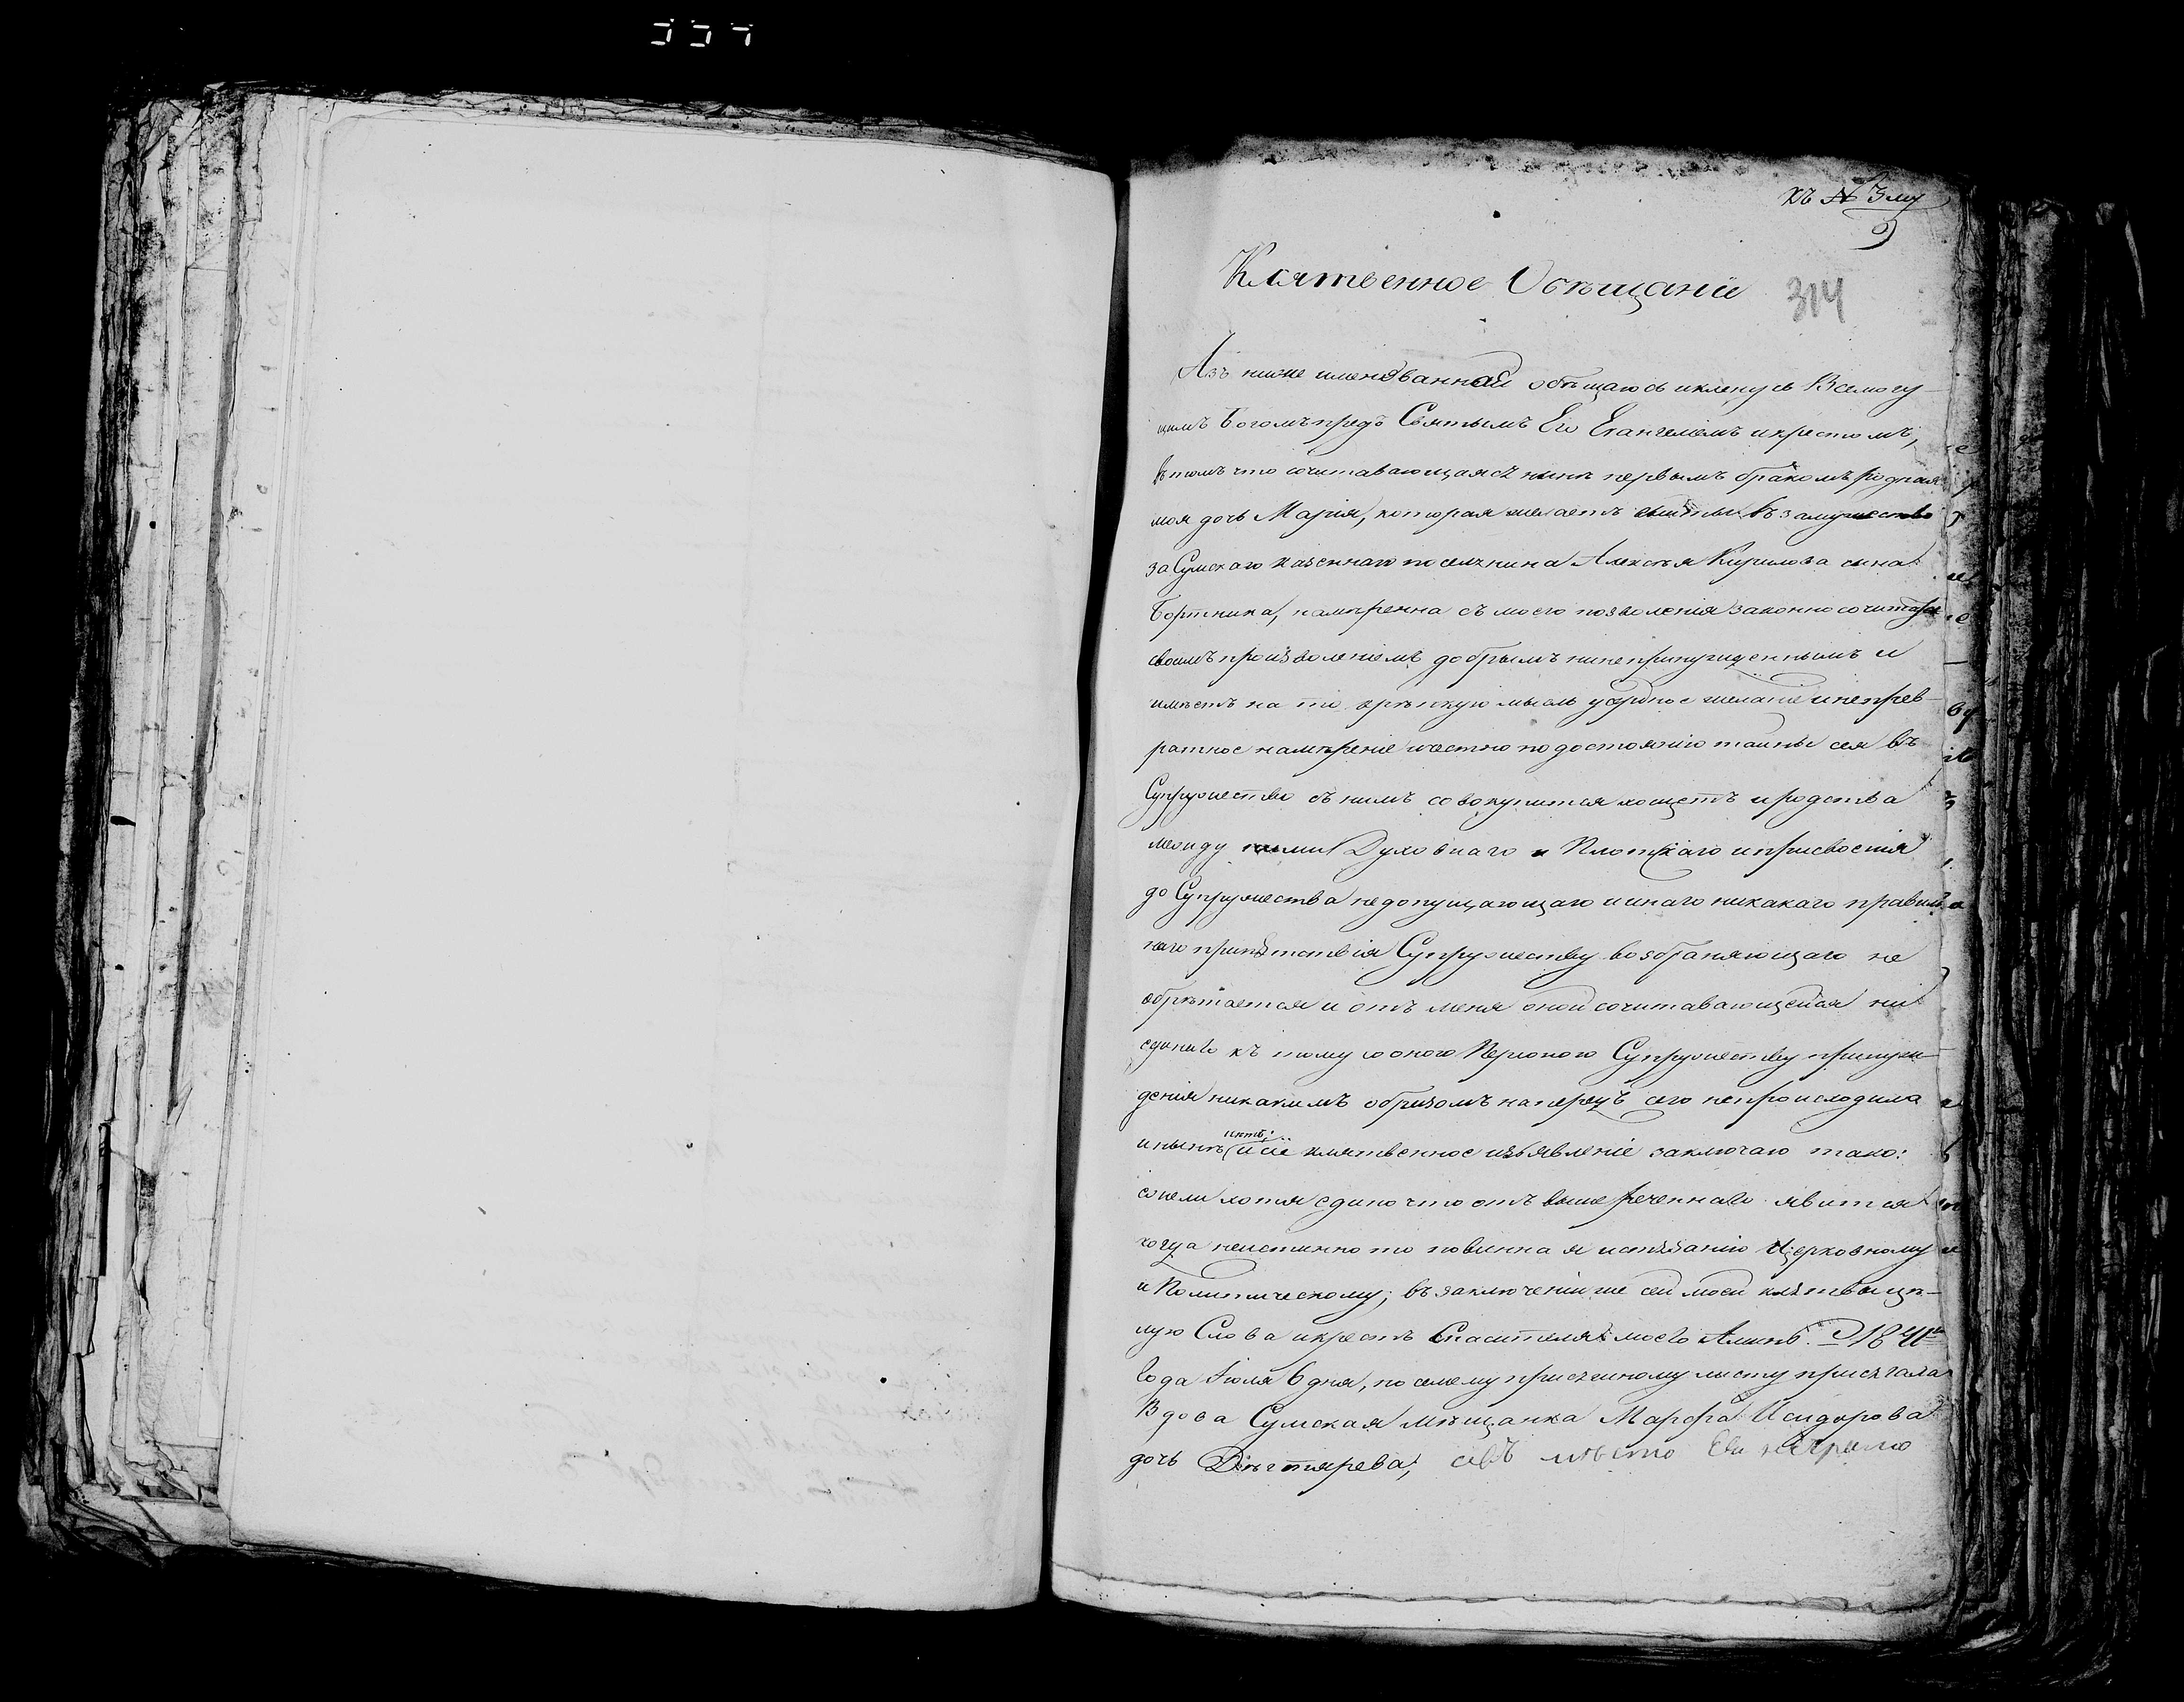 къ № 3му
9
Клятвенное Обѣщаніе
314
Азъ ниже именованная обѣщаюсь и кленусь Всемогу-
щимъ Богомъ предъ Святымъ Его Евангеліемъ и крестомъ,
въ томъ что сочитавающаяся нынѣ первымъ бракомъ родная
моя дочь Марія, которая желаетъ въ замужество
за Сумскаго казеннаго поселянина Алексѣя Кирилова сына
Бортника, намѣренна съ моего позволенія законно сочитатся
своимъ произволеніемъ добрымъ и непринужденнымъ и
имѣетъ на то крѣпкую мысль усердное желаніе и непрев-
ратное намѣреніе и честно по достоянію тайны сея въ
Супружество съ нимъ совокупится хощетъ и родства
между ними Духовнаго и Плотскаго и присвоенія
до Супружества недопущающаго и инаго никакаго правиль
наго припятствія Супружеству возбраняющаго не
обрѣтается и отъ меня оной сочитавающейся ни
единаго къ тому со оного Персоною Супружеству принуж-
денія никакимъ образомъ напередъ сего непроисходила
и нынѣ нѣтъ; и сіе клятвенное изъявленіе заключаю тако:
ежели хотя едино что отъ выше реченнаго явится
когда неистинно то повинна я истязанію Церковному
и Политическому; въ заключеніи же сей моей клятвы цѣ-
лую Слова и крестъ Спасителя моего Аминь. 1841го
Года Іюля 6 дня, по сему присяжному листу присягала
Вдова Сумская мѣщанка Марфа Исидорова
дочь Дѣгтярева, мѣсто Ея неграмо